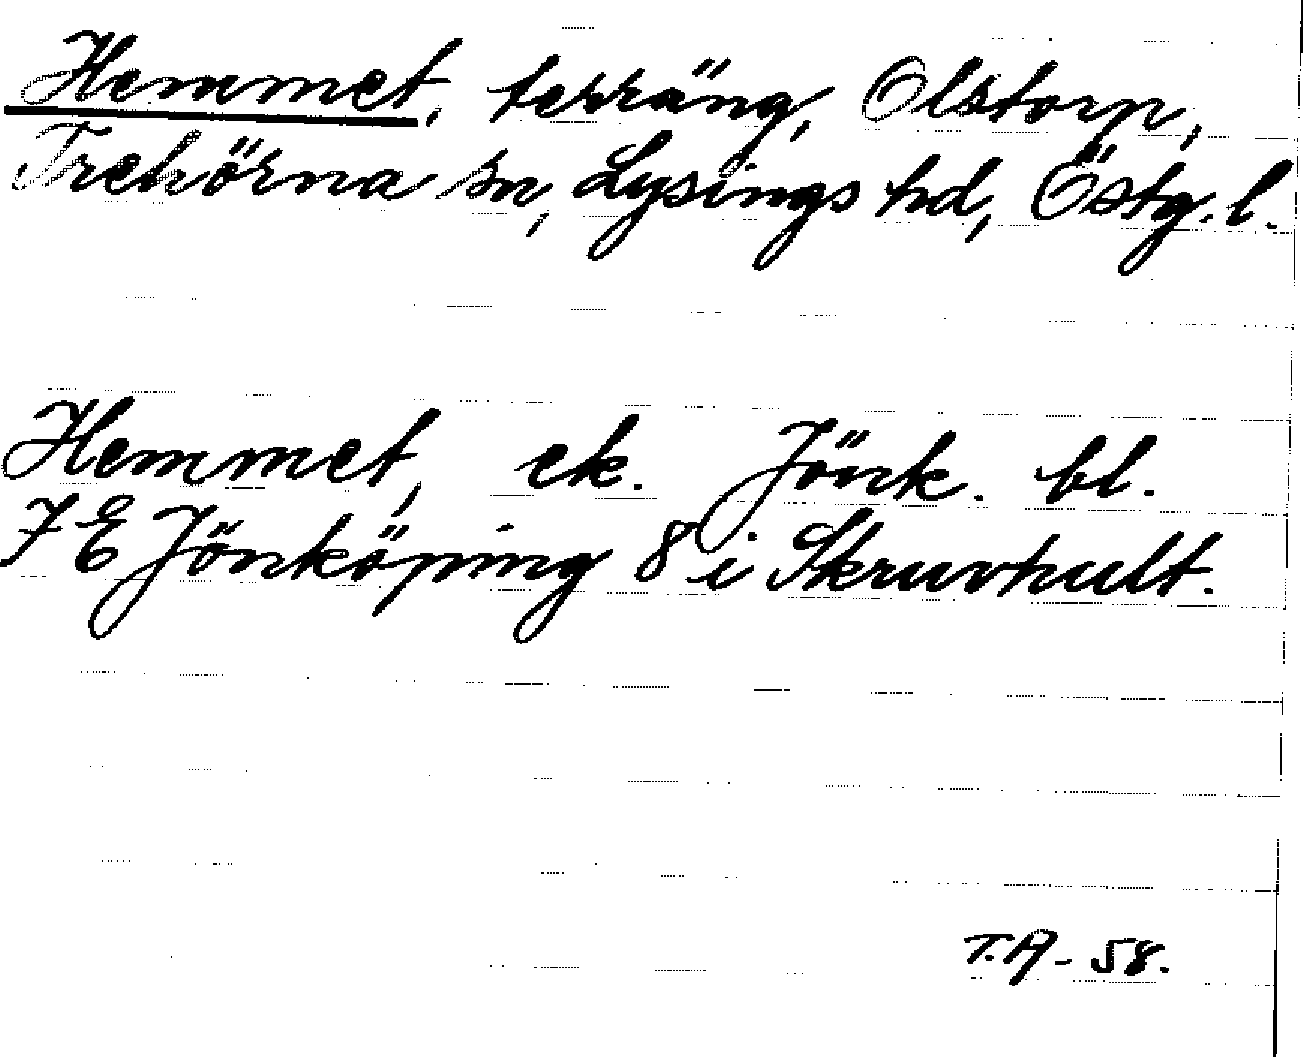 Hemmet, terräng, Olstorp,
Trehörna sn, Lysings hd, Östg. l.
Hemmet, ek. Jönk. bl.
7 E Jönköping 8 i Skruvhult.
T.A - 58.